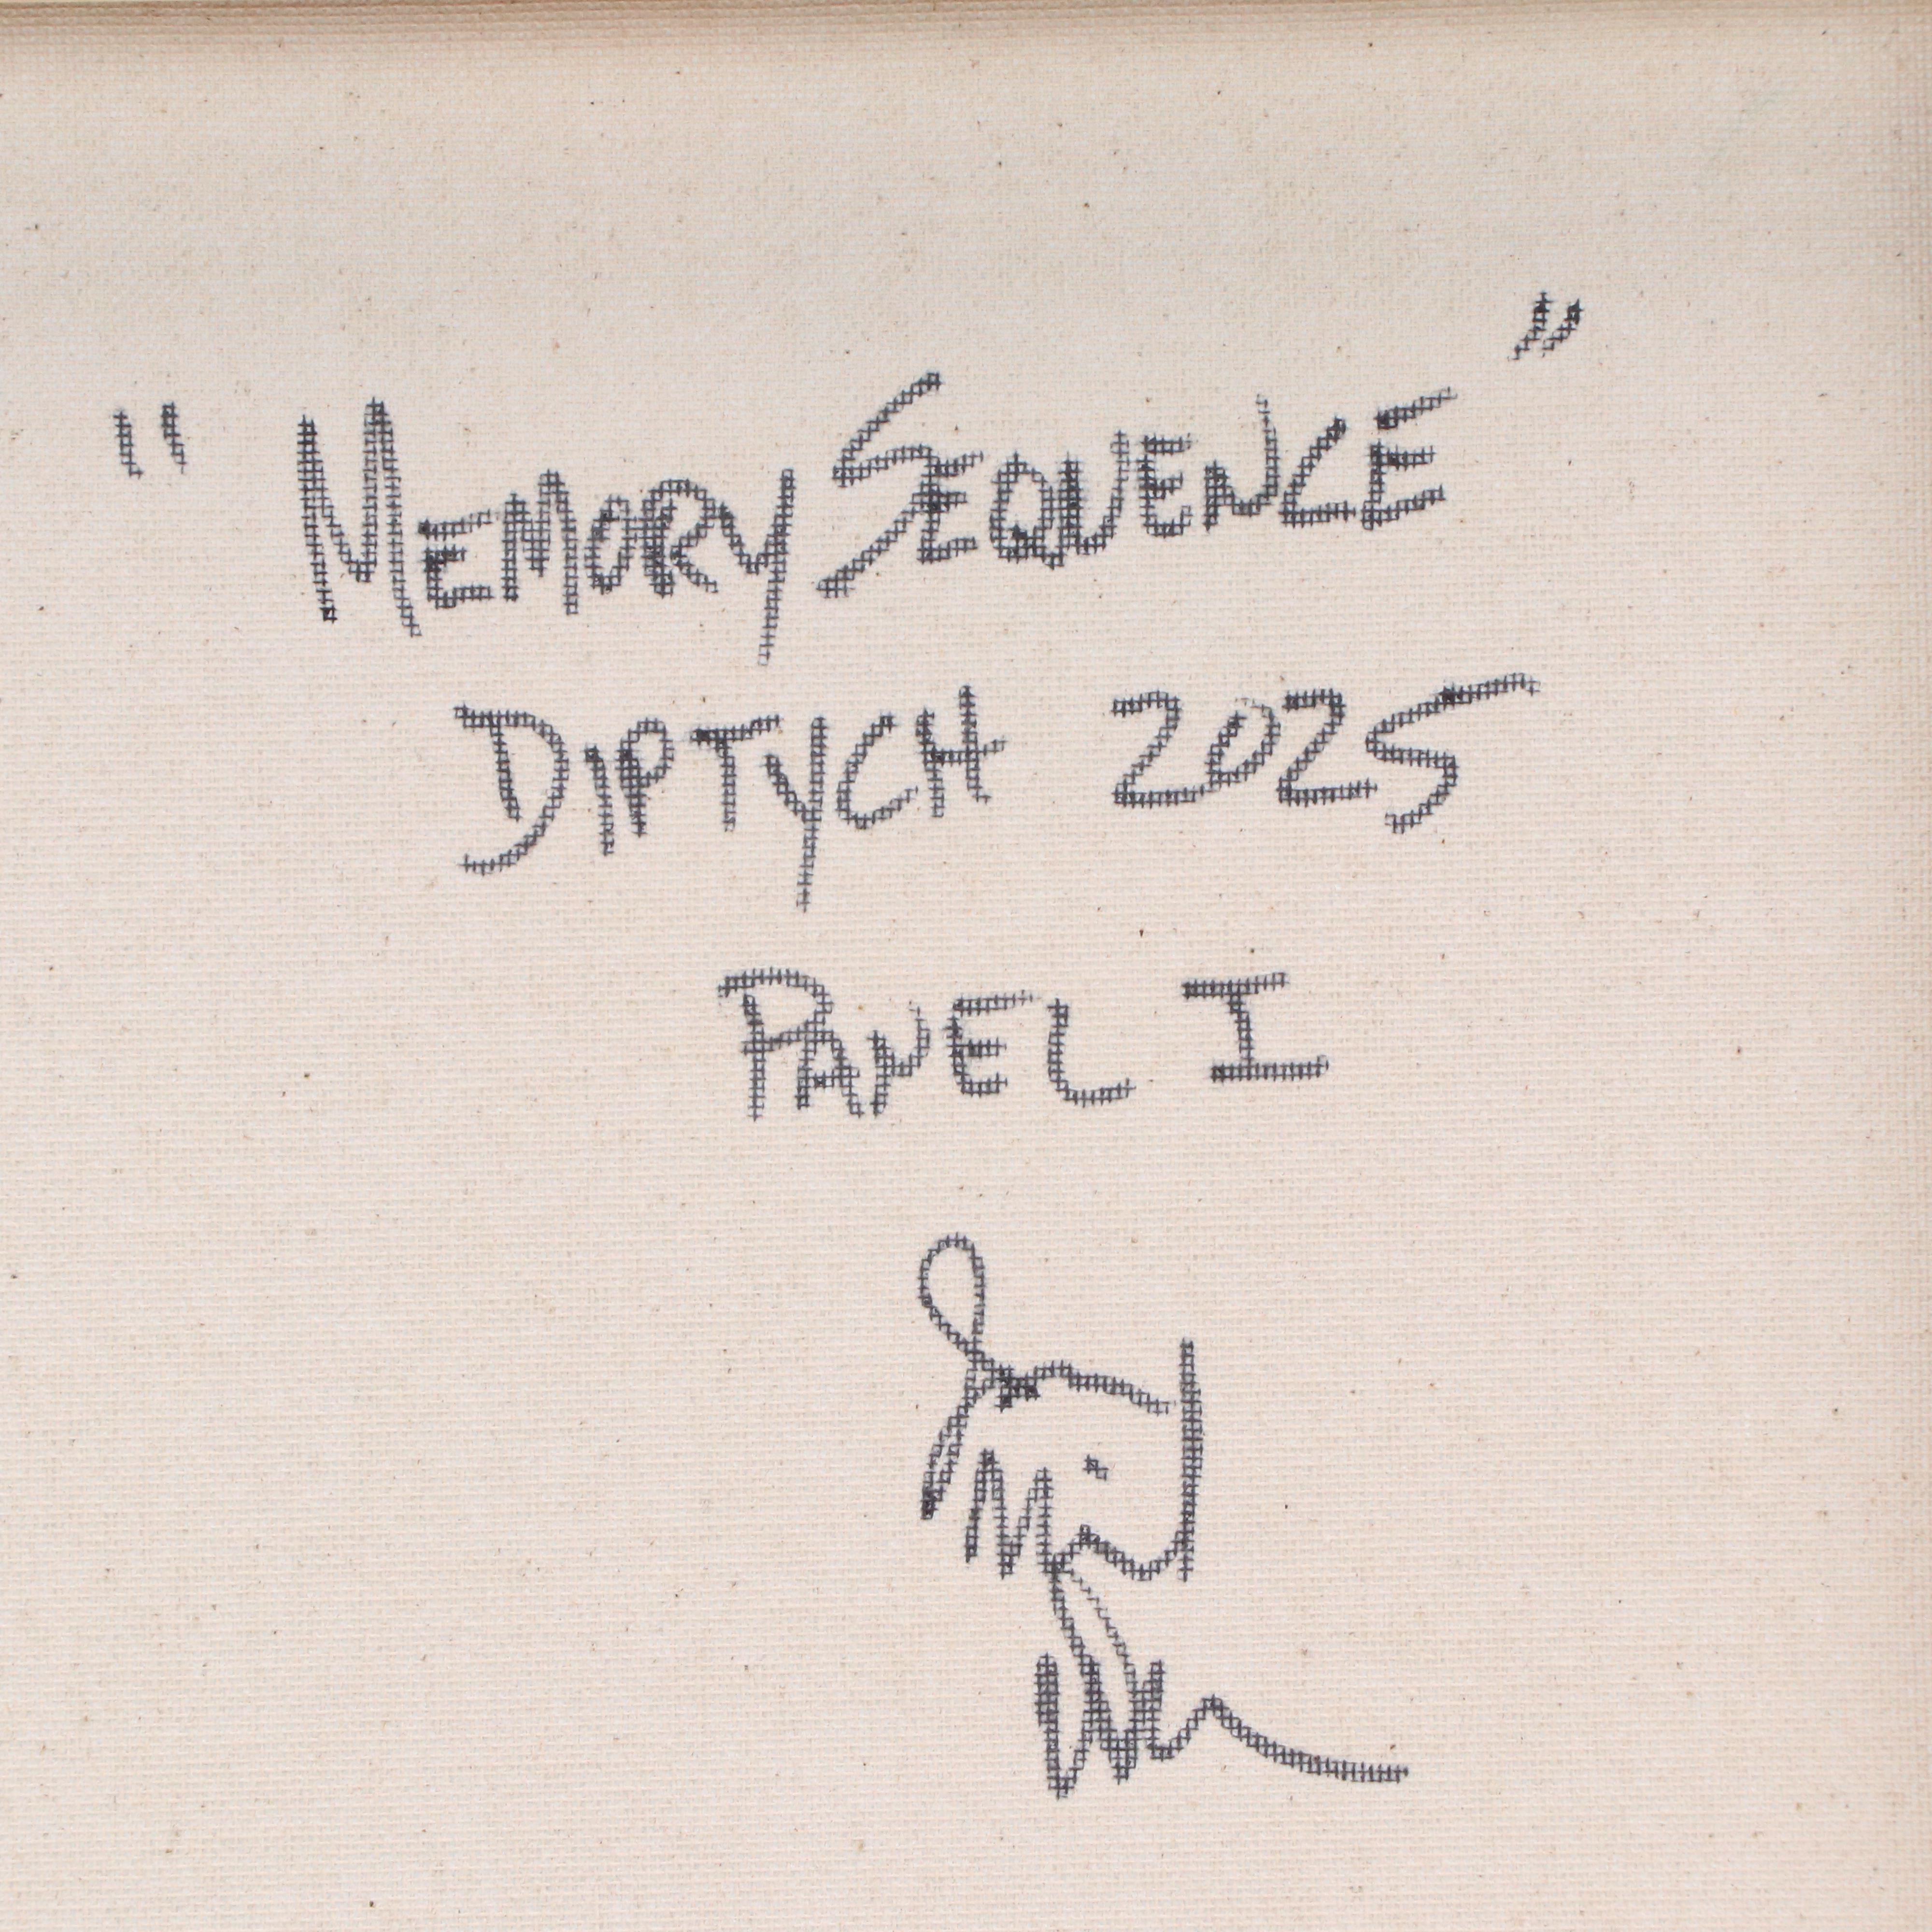 "MEMORY SEQUENCE"
DIPTYCH 2025
PANEL I